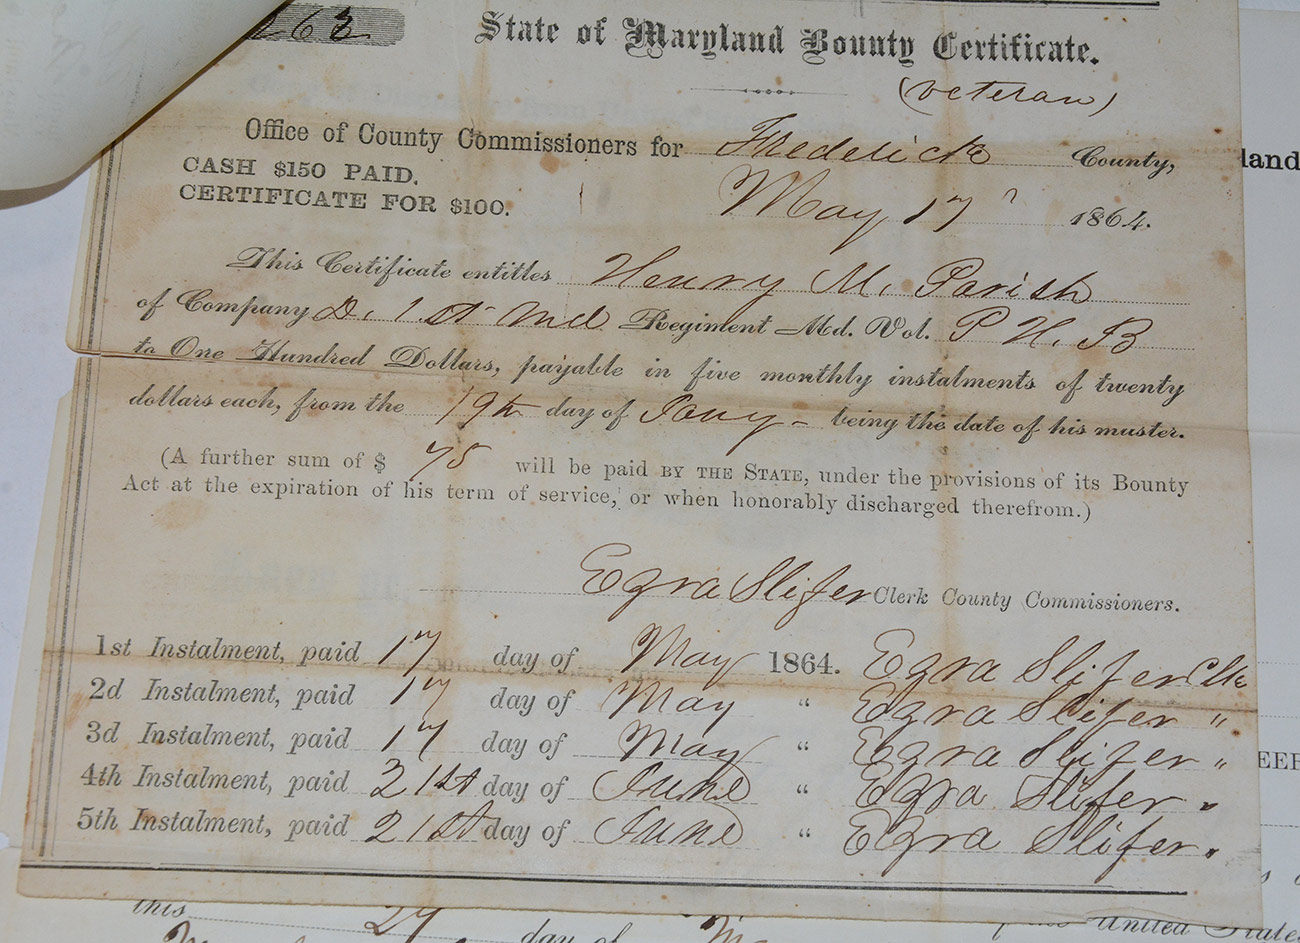 263
State of Maryland Bounty Certificate.
(veteran)
Office of County Commissioners for Frederick County,
CASH $150 PAID.
CERTIFICATE FOR $100.
May 17 1864.
This Certificate entitles Henry M. Parish
of Company D. 1st Md Regiment Md. Vol. P H. B
to One Hundred Dollars, payable in five monthly instalments of twenty
dollars each, from the 19th day of Jany - being the date of his muster.
(A further sum of $ 75 will be paid BY THE STATE, under the provisions of its Bounty
Act at the expiration of his term of service, or when honorably discharged therefrom.)
Ezra Slifer Clerk County Commissioners.
1st Instalment, paid 17 day of May 1864. Ezra Slifer Clk
2d Instalment, paid 17 day of May " Ezra Slifer "
3d Instalment, paid 17 day of May " Ezra Slifer "
4th Instalment, paid 21st day of June " Ezra Slifer "
5th Instalment, paid 21st day of June " Ezra Slifer "
land
EER
this 24 day of
United State